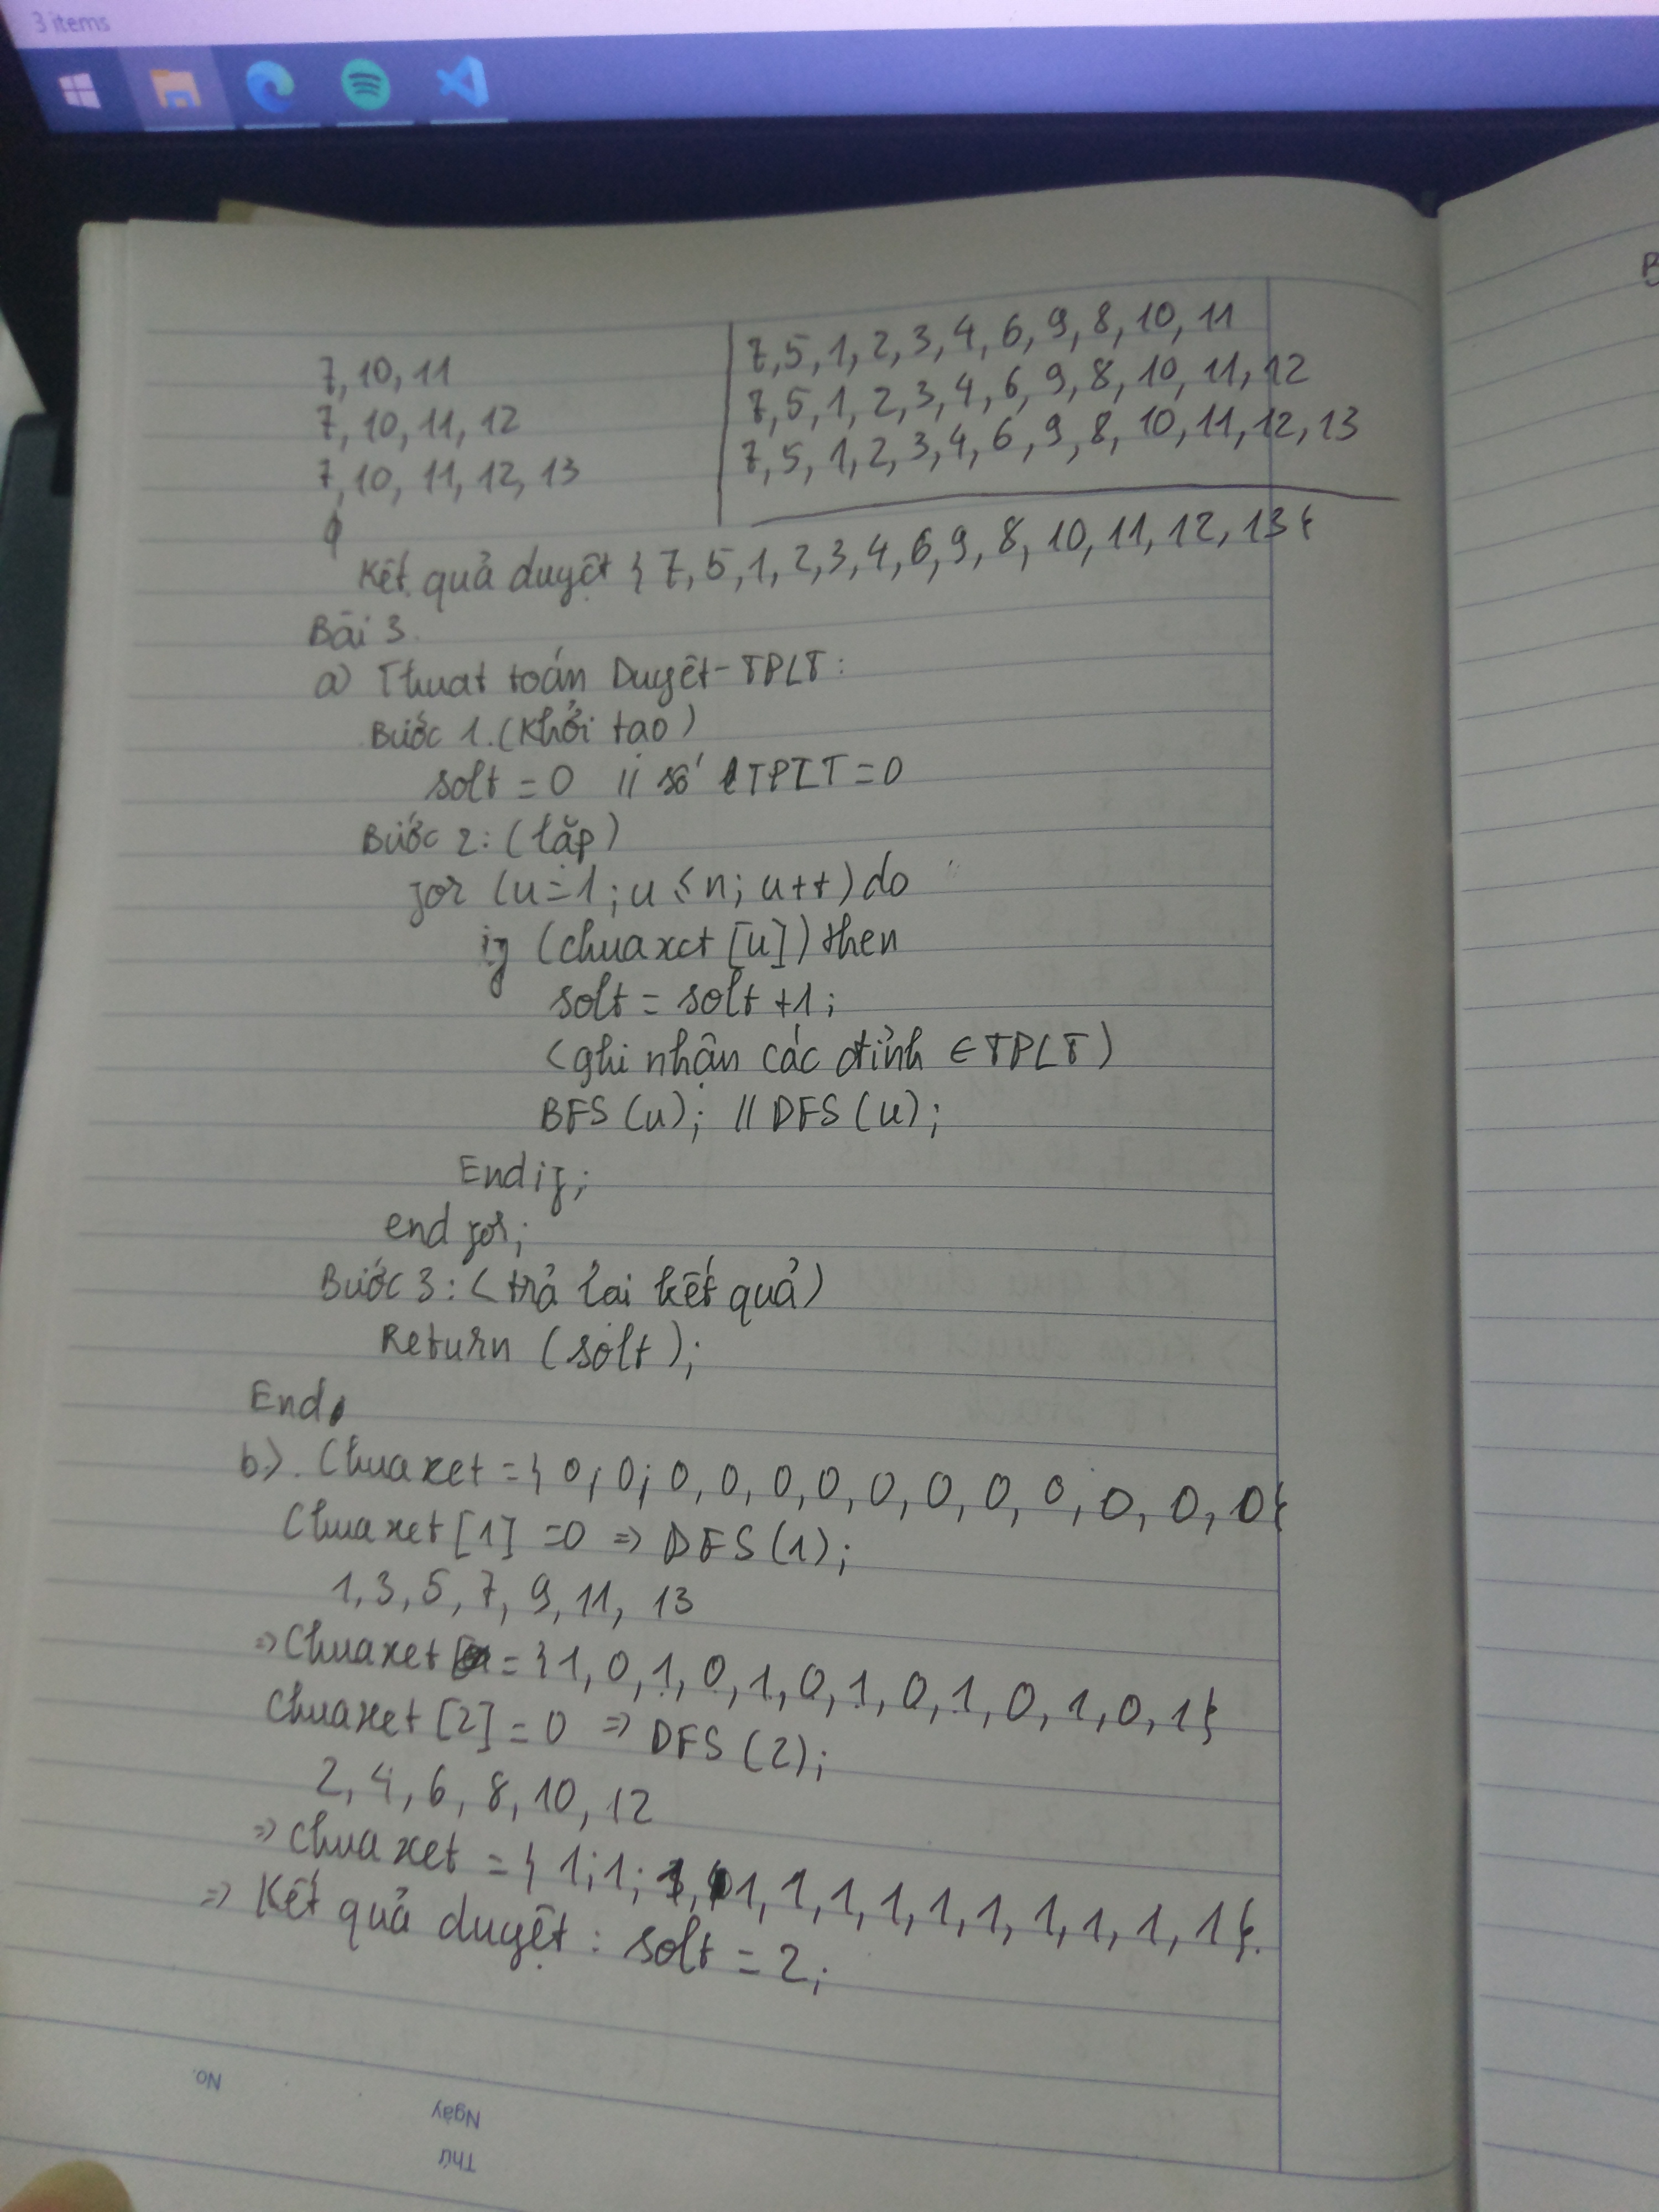 3 items
7, 10, 11
7, 10, 11, 12
7, 10, 11, 12, 13
φ
7, 5, 1, 2, 3, 4, 6, 9, 8, 10, 11
7, 5, 1, 2, 3, 4, 6, 9, 8, 10, 11, 12
7, 5, 1, 2, 3, 4, 6, 9, 8, 10, 11, 12, 13
Kết quả duyệt { 7, 5, 1, 2, 3, 4, 6, 9, 8, 10, 11, 12, 13 }
Bài 3.
a) Thuat toán Duyệt-TPLT:
Bước 1. (Khởi tạo)
solt = 0 // số TPLT = 0
Bước 2: (lặp)
for (u=1; u ≤ n; u++) do
if (chuaxet [u]) then
solt = solt +1;
<ghi nhận các đỉnh ∈ TPLT>
BFS (u); // DFS (u);
Endif;
end for;
Bước 3: <trả lại kết quả>
Return (solt);
End.
b). Chuaxet = { 0; 0; 0, 0, 0, 0, 0, 0, 0, 0, 0, 0, 0 }
Chuaxet [1] = 0 => DFS (1);
1, 3, 5, 7, 9, 11, 13
=> Chuaxet = { 1, 0, 1, 0, 1, 0, 1, 0, 1, 0, 1, 0, 1 }
Chuaxet [2] = 0 => DFS (2);
2, 4, 6, 8, 10, 12
=> chuaxet = { 1; 1; 1, 1, 1, 1, 1, 1, 1, 1, 1, 1, 1 }.
=> Kết quả duyệt: solt = 2;
No.
Ngày
Thứ
B